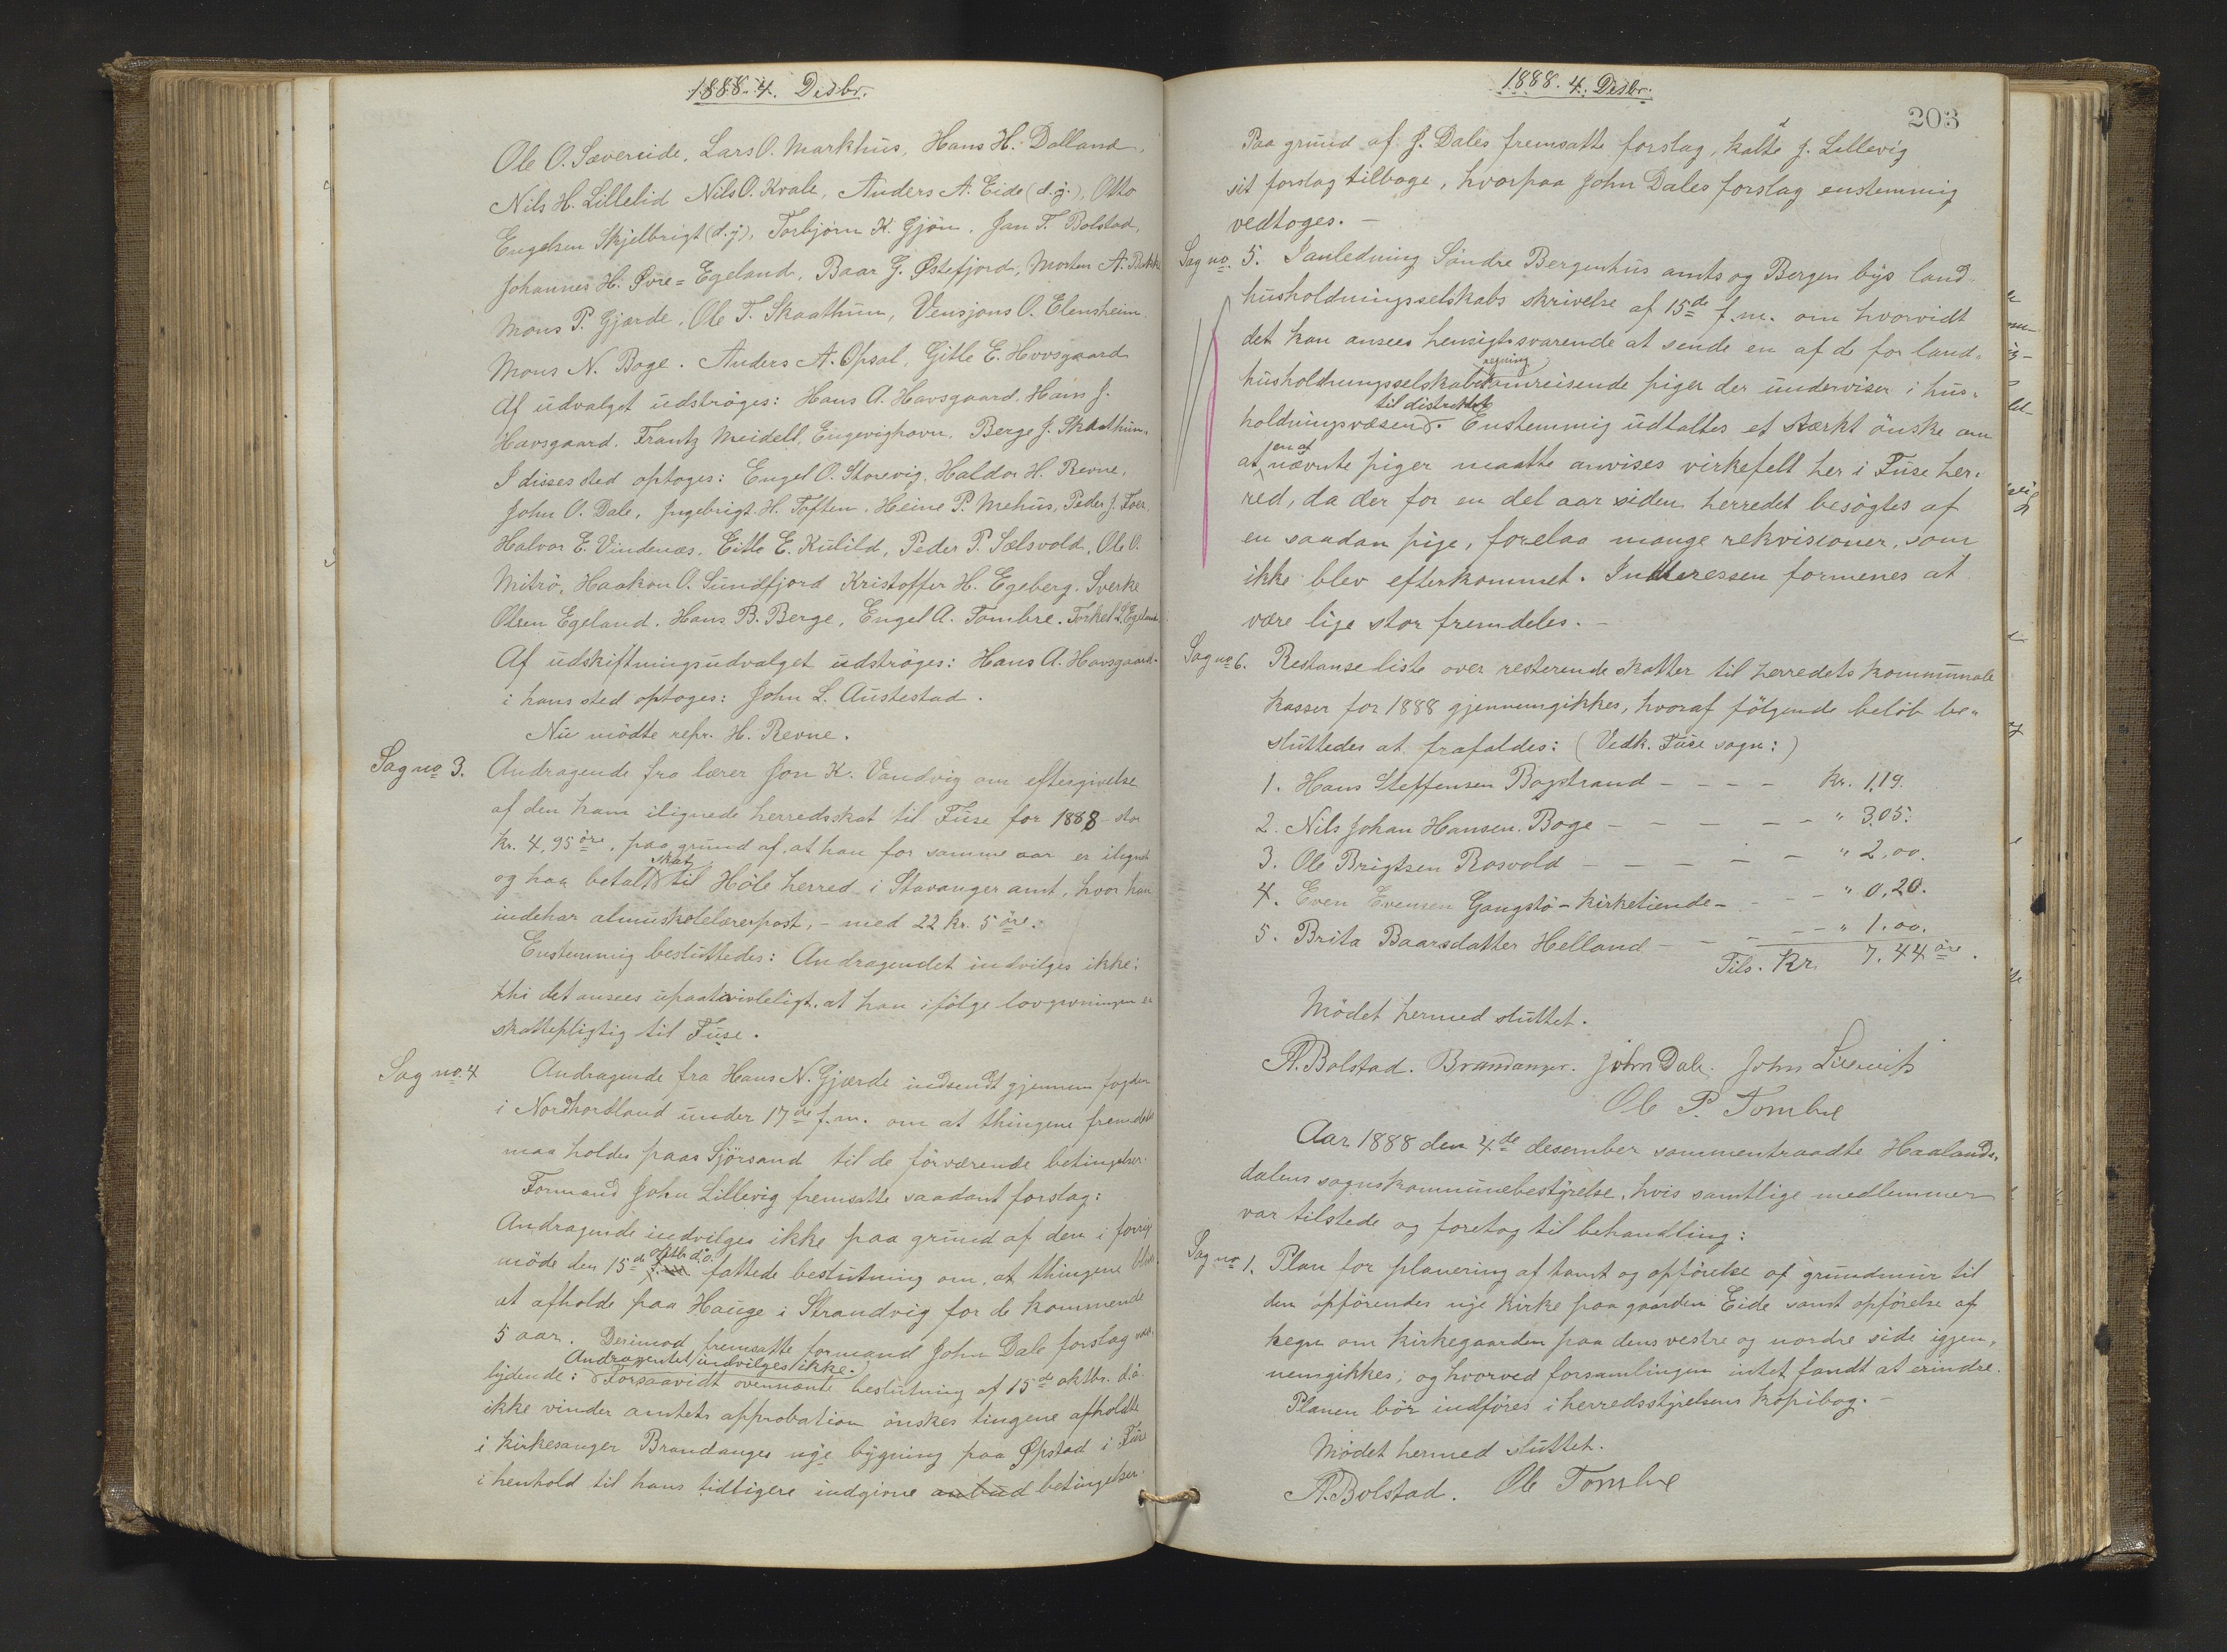 1888. 4. Desbr.
Ole O. Sævereide, Lars O. Markhus, Hans H. Dalland,
Nils H. Lillelid Nils O. Kvale, Anders A. Eide (d.y.), Otto
Engelsen Skjelbrigt (d.y), Torbjørn K. Gjøn. Jan T. Bolstad,
Johannes H. Øvre=Egeland, Baar G. Østefjord, Morten A.
Mons P. Gjærde, Ole T. Skaathun, Vensjans O. Elensheim.
Mons N. Boge. Anders A. Opsal, Gitle E. Hovsgaard
Af udvalget udstrøges: Hans A. Havsgaard, Hans J.
Havsgaard. Frantz Meidell, Engevighavn, Berge J. Skaathun.
I disses sted optoges: Engel O. Storevig, Haldor H. Revne,
John O. Dale, Ingebrigt H. Toften, Heine P. Mehus, Peder J. Foer,
Halvor E. Vindenæs, Eitle E. Kulild, Peder P. Sælsvold, Ole O.
Miträ, Haakon O. Sundfjord Kristoffer H. Egeberg. Sverke
Olsen Egeland. Hans B. Berge, Engel A. Tombre. Torkel L. Egeland
Af udskiftningsudvalget udstrøges: Hans A. Havsgaard.
i hans sted optoges: John L. Austestad.
Nu mødte repr. H. Revne.
Sag no 3. Andragende fra lærer Jon K. Vandvig om eftergivelse
af den ham ilignede herredsskat til Fuse for 1888 stor
kr. 4,95 øre, paa grund af, at han for samme aar er ilignet
og har betalt skat til Høle herred i Stavanger amt, hvor han
indehar almuskolelærerpost, - med 22 kr. 5 øre.
Enstemmig besluttedes: Andragendet indvilges ikke;
thi det ansees upaatvivleligt, at han ifølge lovgivningen er
skattepligtig til Fuse.
Sag no. 4 Andragende fra Hans N. Gjærde indsendt gjennem fogden
i Nordhordland under 17de f.m. om at thingene fremdeles
maa holdes paa Sjørsand til de førværende betingelser.
Formand John Lillevig fremsatte saadant forslag:
Andragende indvilges ikke paa grund af den i forrige
møde den 15de oktb. d.a. fattede beslutning om, at thingene bliver
at afholde paa Hauge i Strandvig for de kommende
5 aar. Derimod fremsatte formand John Dale forslag saa-
lydende: Andragendet indvilges ikke. Forsaavidt ovennævnte beslutning af 15de oktbr. d.a.
ikke vinder amtets approbation ønskes tingene afholdte
i kirkesanger Brandanges nye bygning paa Øpstad i Fuse
i henhold til hans tidligere indgivne anbud betingelser.
1888. 4. Desbr.
203
Paa grund af J. Dales fremsatte forslag, kaldte J. Lillevig
sit forslag tilbage, hvorpaa John Dales forslag enstemmig
vedtoges. -
Sag no. 5. I anledning Søndre Bergenhus amts og Bergen bys land-
husholdningsselskabs skrivelse af 15de f.m. om hvorvidt
det kan ansees hensigtssvarende at sende en af de for land-
husholdningsselskabets regning omreisende piger der underviser i hus-
holdningsvæsend til distriktet. Enstemmig udtaltes et stærkt ønske om
at en af nævnte piger maatte anvises virkefelt her i Fuse her-
red, da der for en del aar siden herredet besøgtes af
en saadan pige, forelaa mange rekvisioner, som
ikke blev efterkommet. Interessen formenes at
være lige stor fremdeles. -
Sag no 6. Restanseliste over resterende skatter til herredets kommunale
kasser for 1888 gjennemgikkes, hvoraf følgende beløb be-
sluttedes at frafaldes: (Vedk. Fuse sogn:)
1. Hans Steffensen Bogstrand - - - - kr. 1,19.
2. Nils Johan Hansen Boge - - - - - " 3,05.
3. Ole Brigtsen Rosvold - - - - - " 2,00.
4. Even Evensen Gangstø - kirketiende - - - " 0,20.
5. Brita Baarsdatter Helland - - - - - " 1.00.
Tils. Kr. 7,44 øre.
Mødet hermed sluttet.
A. Bolstad. Brandanger. John Dale. John Lillevik
Ole P. Tombre
Aar 1888 den 4de desember sammentraadte Haalands-
dalens sognskommunebestyrelse, hvis samtlige medlemmer
var tilstede og foretog til behandling:
Sag no 1. Plan for planering af tomt og opførelse af grundmur til
den opførendes nye kirke paa gaarden Eide samt opførelse af
hegn om kirkegaarden paa dens vestre og nordre side igjen-
nemgikkes, og hvorved forsamlingen intet fandt at erindre.
Planen bør indføres i herredsstyrelsens kopibog. -
Mødet hermed sluttet.
A. Bolstad. Ole Tombre